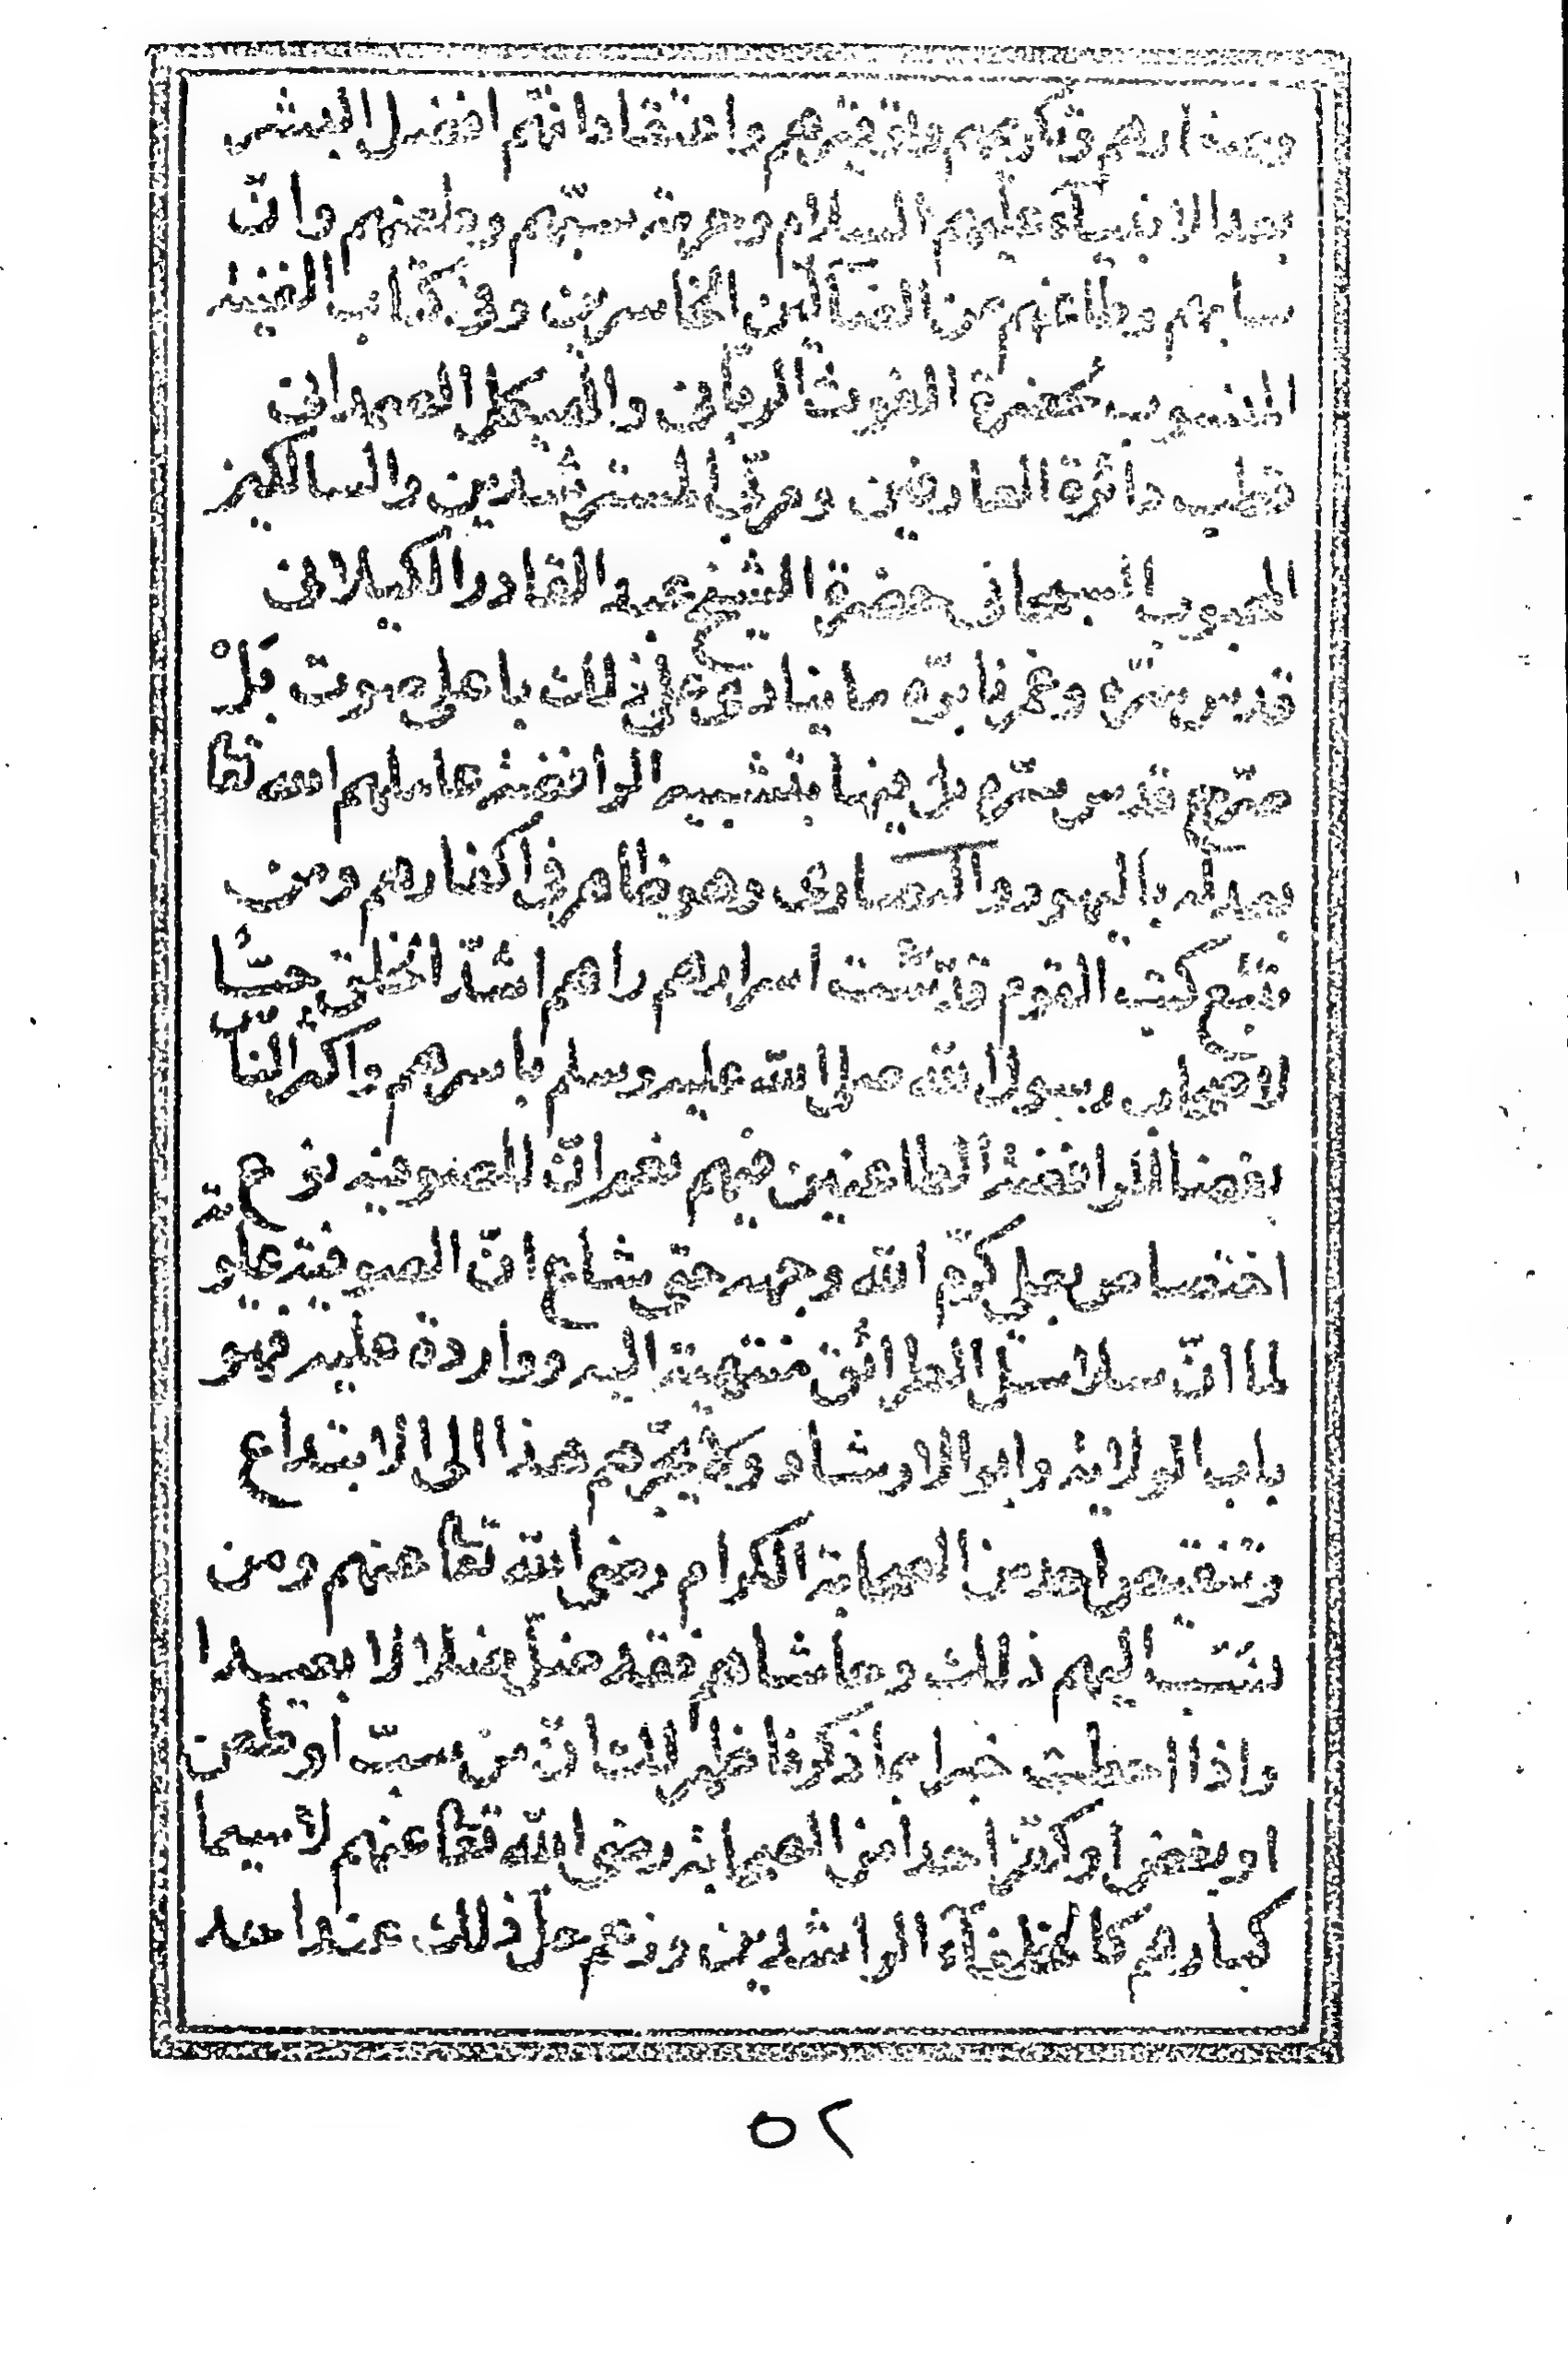 وصغارهم وتكريمهم وتوقيرهم واعتقاد انهم افضل البشر
بعد الانبيآء عليهم السلام وحرمة سبّهم وطعنهم وانّ
سابهم وطاعنهم من الضآلين الخاسرين وفي كتاب الغنية
المنسوب لحضرة الغوث الربّاني والهيكل الصمداني
قطب دائرة العارفين ومربّي المسترشدين والسالكين
المحبوب السبحاني حضرة الشيخ عبد القادر الكيلاني
قدس سرّه وغمرنا برّه ما ينادي على ذلك باعلى صوت بَلْ
صرّح قدس سرّه فيها بتشبيه الرافضة عاملهم الله تعا
بعدله باليهود والنصارى وهو ظاهر في اكفارهم ومن
تتبّع كتب القوم قدّست اسرارهم راهم اشدّ الخلق حبّا
لاصحاب رسول الله صلى الله عليه وسلم باسرهم واكثر الناس
بغضا للرافضة الطاعنين فيهم نعم انّ للصوفية نوع
اختصاص بعلي كرّم الله وجهه حتى شاع انّ الصوفية علويّة
لما انّ سلاسل الطرائق منتهية اليه وواردة عليه فهو
باب الولاية وابو الارشاد ولا يجرّهم هذا الى الابتداع
وتنقيص احد من الصحابة الكرام رضي الله تعا عنهم ومن
نسب اليهم ذلك وحاشاهم فقد ضلّ ضلالا بعيدا
واذا احطت خبرا بما ذكرنا ظهر لك انّ من سبّ او طعن
او بغض او كفّر احدا من الصحابة رضي الله تعا عنهم لاسيما
كبارهم كالخلفآء الراشدين وزعم حلّ ذلك عند احد
٥٢